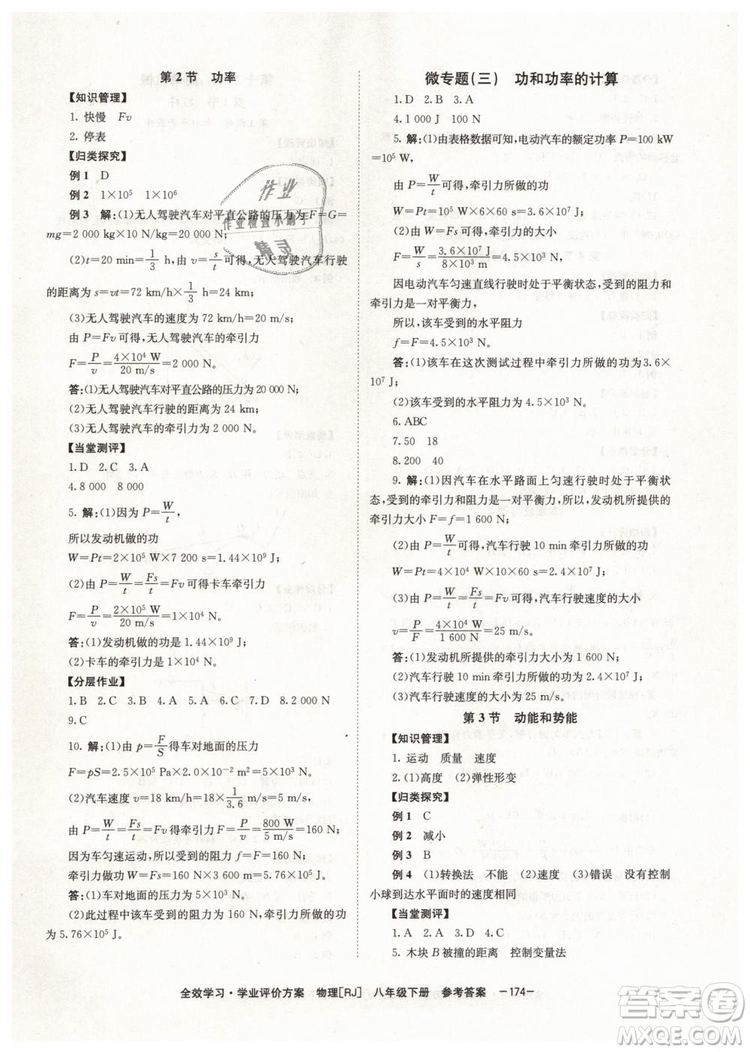 第2节 功率
【知识管理】
1. 快慢 Fv
2. 停表
【归类探究】
例1 D
例2 1×10⁵ 1×10⁶
例3 解:(1)无人驾驶汽车对平直公路的压力为F=G=
mg=2 000 kg×10 N/kg=20 000 N。
(2)t=20 min=1/3 h,由v=s/t可得,无人驾驶汽车行驶
的距离为s=vt=72 km/h×1/3 h=24 km。
(3)无人驾驶汽车的速度为72 km/h=20 m/s,
由P=Fv可得,无人驾驶汽车的牵引力
F=P/v=4×10⁴ W/20 m/s=2 000 N。
答:(1)无人驾驶汽车对平直公路的压力20 000 N;
(2)无人驾驶汽车行驶的距离为24 km;
(3)无人驾驶汽车的牵引力为2 000 N。
【当堂测评】
1. D 2. C 3. A
4. 8 000 8 000
5. 解:(1)因为P=W/t,
所以发动机做的功
W=Pt=2×10⁴ W×7 200 s=1.44×10⁸ J;
(2)由P=W/t=Fs/t=Fv可得卡车牵引力
F=P/v=2×10⁴ W/10 m/s=2×10³ N。
答:(1)发动机做的功是1.44×10⁸ J;
(2)卡车的牵引力是2×10³ N。
【分层作业】
1. B 2. C 3. C 4. A 5. A 6. B 7. B 8. D
9. C
10. 解:(1)由p=F/S得车对地面的压力
F=pS=2.5×10⁵ Pa×0.02 m²=5×10³ N;
(2)汽车速度v=18 km/h=18×1/3.6 m/s=5 m/s,
由P=W/t=Fs/t=Fv得F=P/v=800 W/5 m/s=160 N;
因为车匀速运动,所以受到的阻力f=F=160 N,
牵引力做功W=Fs=160 N×3 600 m=5.76×10⁵ J。
答:(1)车对地面的压力是5×10³ N;
(2)此过程中该车受到的阻力为160 N,牵引力做的功
为5.76×10⁵ J。
微专题(三) 功和功率的计算
1. D 2. B 3. A
4. 1 000 J 100 W
5. 解:(1)由表格数据可知,电动汽车的额定功率P=100 kW
=10⁵ W,
由P=W/t可得,牵引力所做的功
W=Pt=10⁵ W×6×60 s=3.6×10⁷ J;
(2)由W=Fs可得,牵引力
F=W/s=3.6×10⁷ J/8×10³ m=4.5×10³ N
因电动汽车匀速直线行驶时处于平衡状态,受到的阻力和
牵引力是一对平衡力,
所以,该车受到的水平阻力
f=F=4.5×10³ N。
答:(1)该车在这次测试过程中牵引力所做的功为3.6×
10⁷ J;
(2)该车受到的水平阻力为4.5×10³ N。
6. ABC
7. 50 18
8. 200 40
9. 解:(1)因汽车在水平路面上匀速行驶时处于平衡状
态,受到的牵引力和阻力是一对平衡力,所以发动机所提供
的牵引力F=f=1 600 N;
(2)由P=W/t可得,汽车行驶10 min牵引力所做的功
W=Pt=4×10⁴ W×10×60 s=2.4×10⁷ J;
(3)由P=W/t=Fs/t=Fv可得,汽车行驶速度的大小
v=P/F=4×10⁴ W/1 600 N=25 m/s。
答:(1)发动机所提供的牵引力为1 600 N;
(2)汽车行驶10 min牵引力所做的功为2.4×10⁷ J;
(3)汽车行驶速度的大小为25 m/s。
第3节 动能和势能
【知识管理】
1. 运动 质量 速度
2. (1)高度 (2)弹性形变
【归类探究】
例1 C
例2 减小
例3 B
例4 (1)转换法 不能 (2)速度 (3)错误 没有控制
小球到达水平面时的速度相同
【当堂测评】
1. C 2. D 3. C 4. A
5. 木块B被撞的距离 控制变量法
全效学习·学业评价方案 物理[RJ] 八年级下册 参考答案 —174—